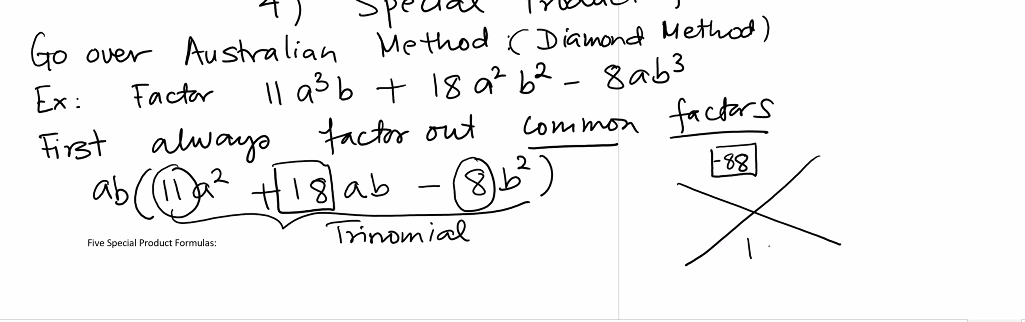 4) Special Product
Go over Australian Method : (Diamond Method)
Ex: Factor 11a³b + 18a²b² - 8ab³
First always factor out common factors
-88
ab(11a² + 18ab - 8b²)
Trinomial
1
Five Special Product Formulas: